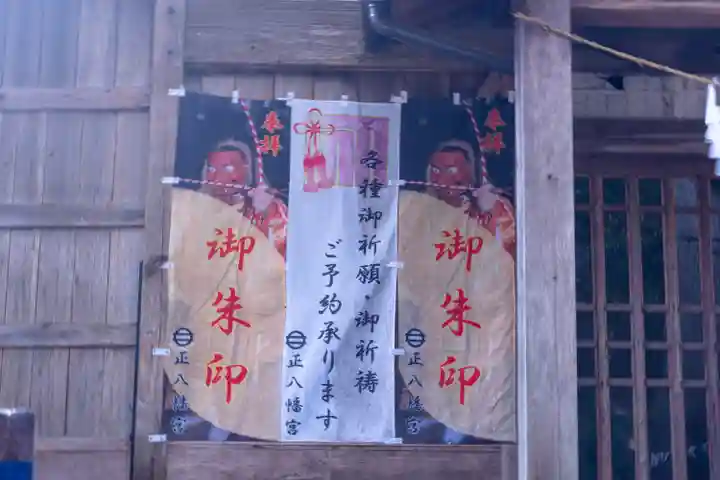 奉拝
御朱印
正八幡宮
各種御祈願・御祈祷
ご予約承ります
正八幡宮
奉拝
御朱印
正八幡宮